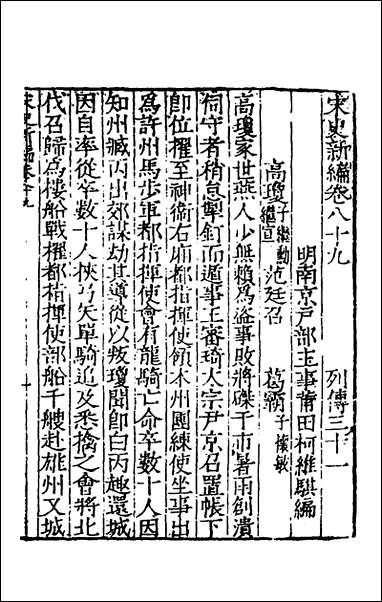 宋史新編卷八十九　列傳三十一
明南京戶部主事莆田柯維騏編
高瓊子繼勳繼宣　范廷召　葛霸子懷敏
高瓊家世燕人少無賴為盜事敗將磔于市暑雨創潰
伺守者稍怠掣釘而遁事王審琦太宗尹京召置帳下
即位擢至神衛右廂都指揮使領本州團練使坐事出
為許州馬步軍都指揮使會有龍騎亡命卒數十人因
知州臧丙出郊謀劫其導從以叛瓊聞即白丙趣還城
因自率從卒數十人挾弓矢單騎追及悉擒之會將北
伐召歸為樓船戰擢都指揮使部船千艘赴雄州又城